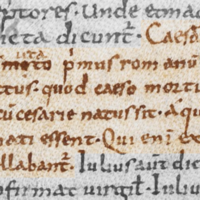 ptores. Unde et mad
dicunt̄. Caesa
p̄mus rom anū
tus. quod caeso mortu
cesarie natus sit. A qu
nati essent. Qui eni et
llabant̄. Iulius aut dic
firmat virgil. Iuliu